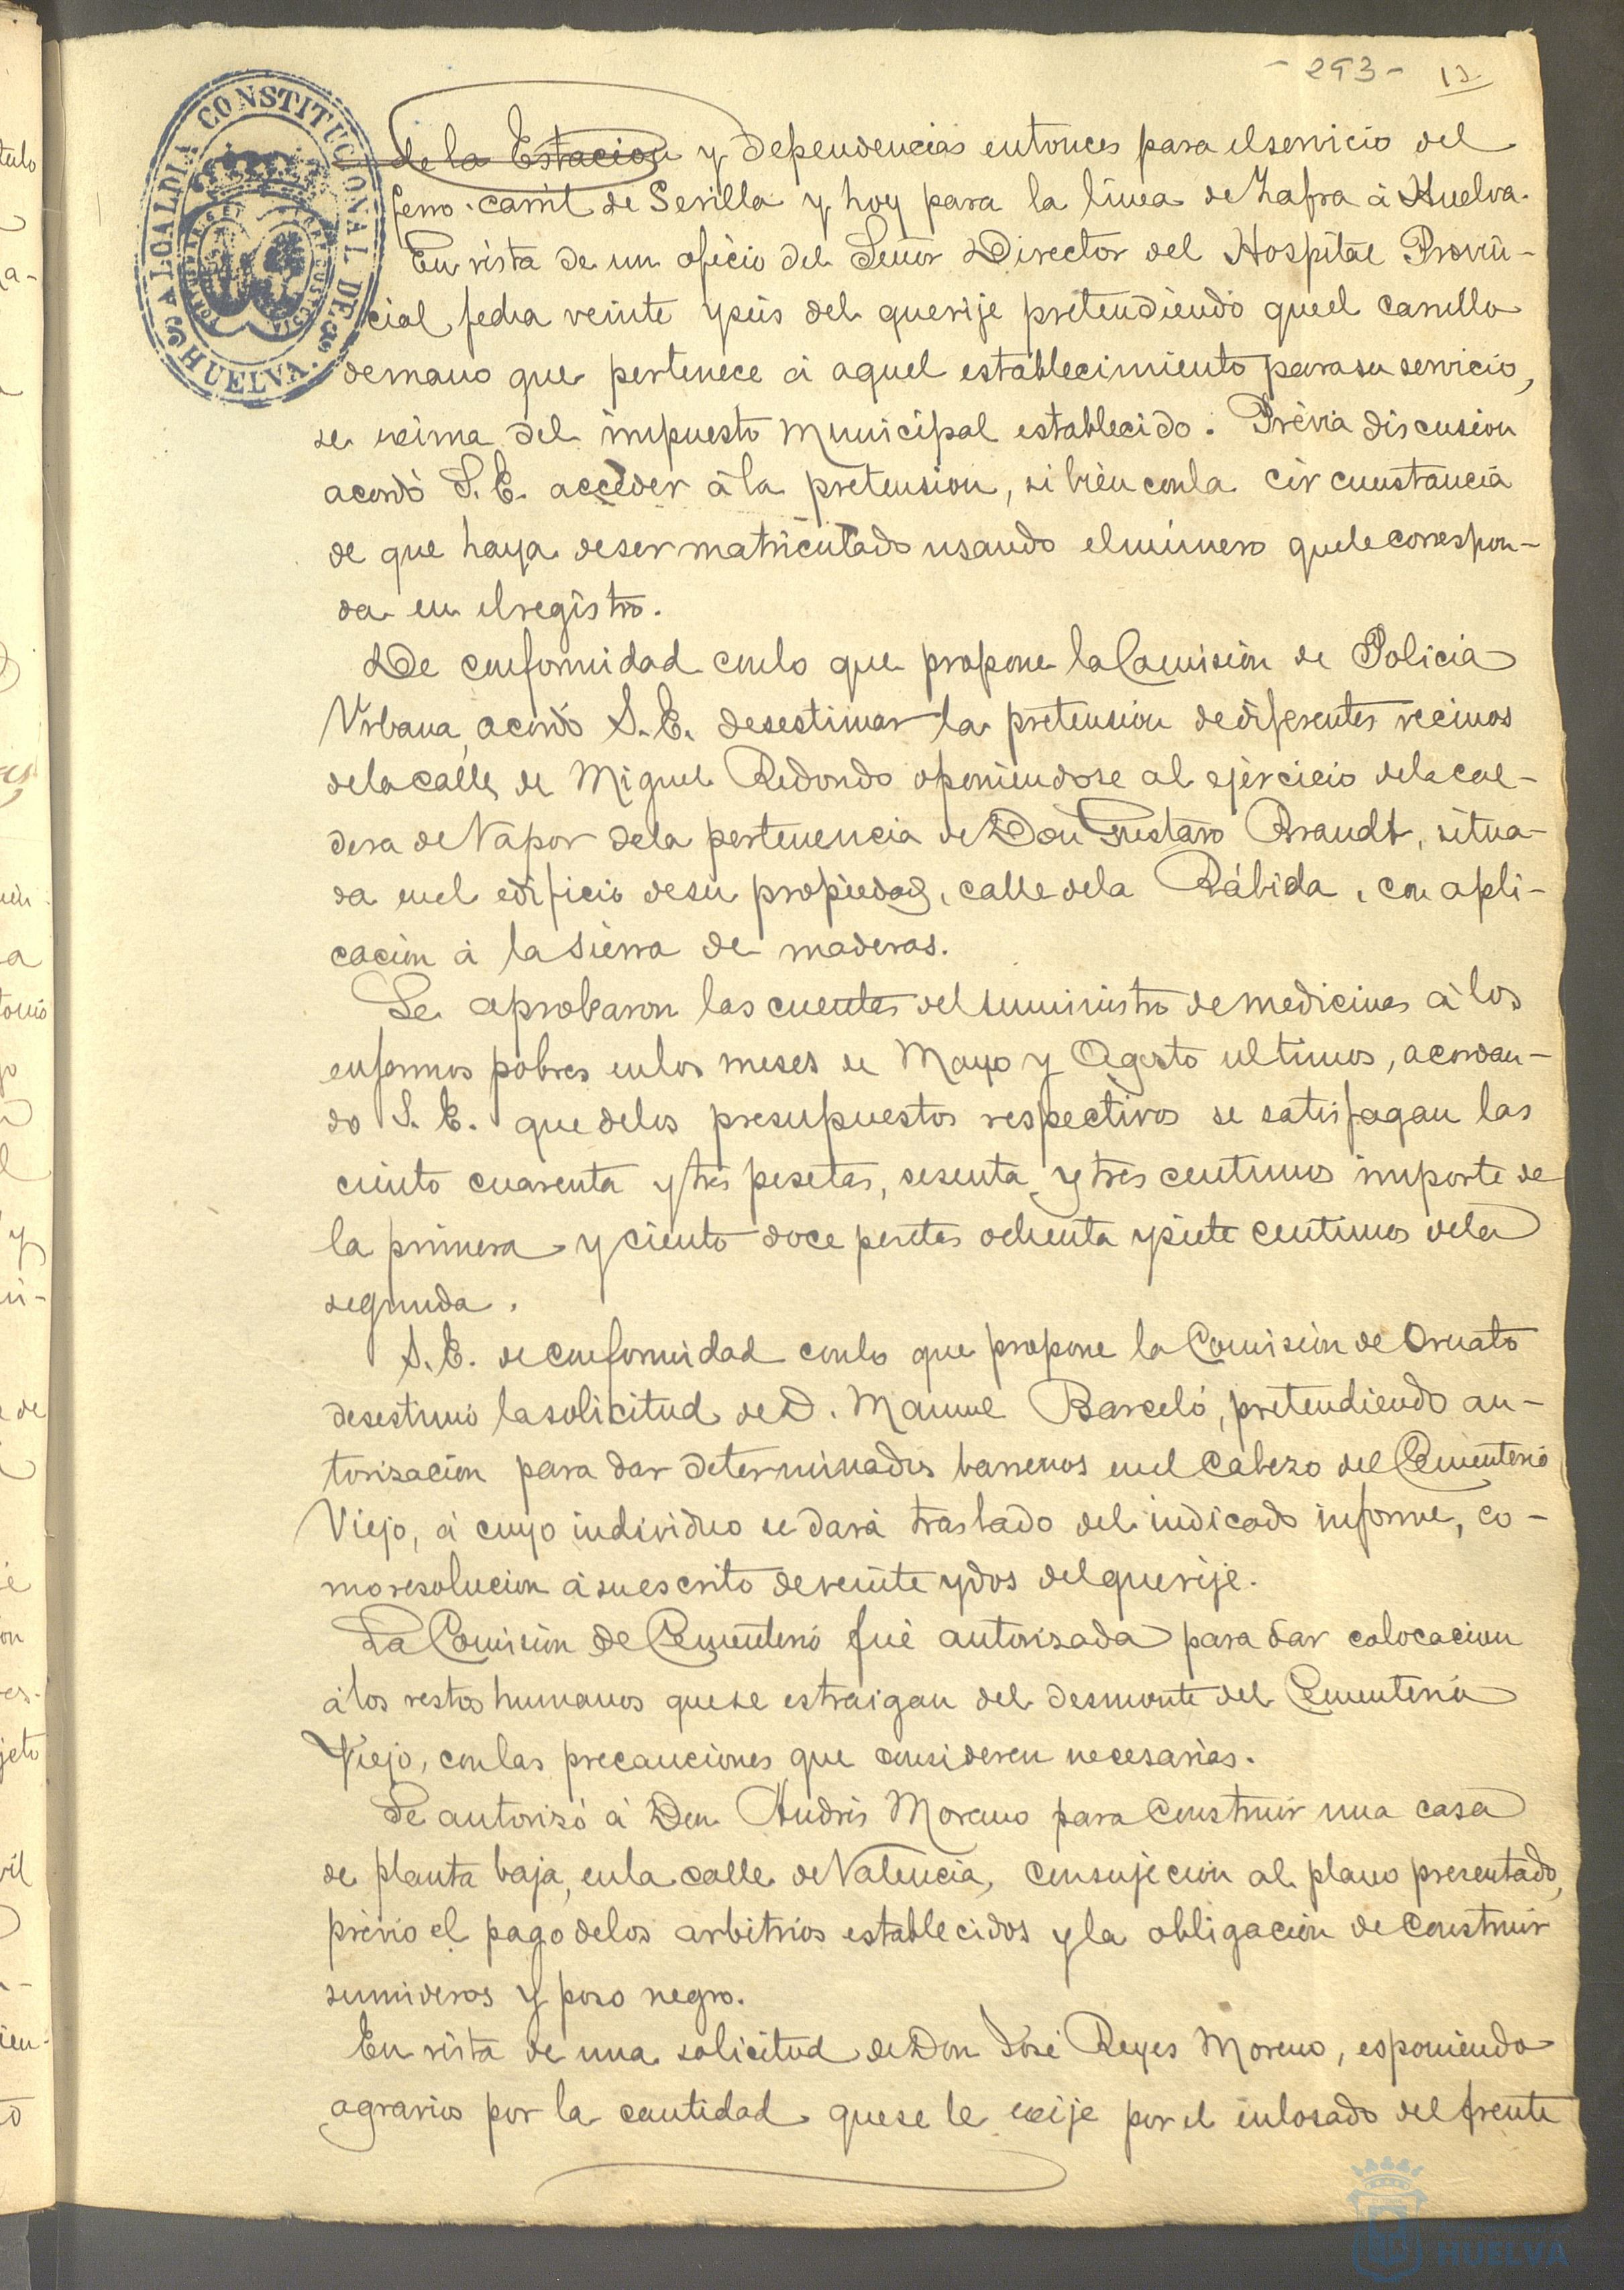 - 293 - 12
ALCALDIA CONSTITUCIONAL DE HUELVA.
de la Estacion y dependencias entonces para el servicio del
ferro-carril de Sevilla y hoy para la línea de Zafra á Huelva.
En vista de un oficio del Señor Director del Hospital Provin-
cial, fecha veinte y seis del que rije pretendiendo que el carrillo
de mano que pertenece á aquel establecimiento para su servicio,
se exima del impuesto Municipal establecido. Prévia discusion
acordó S. E. acceder á la pretension, si bien con la circunstancia
de que haya de ser matriculado usando el número que le correspon-
da en el registro.
De conformidad con lo que propone la Comisión de Policia
Urbana, acordó S. E. desestimar la pretension de diferentes vecinos
de la calle de Miguel Redondo oponiendose al ejercicio de la cal-
dera de Vapor de la pertenencia de Don Gustavo Brandt, situa-
da en el edificio de su propiedad, calle de la Rábida, con apli-
cación á la sierra de maderas.
Se aprobaron las cuentas del suministro de medicinas á los
enfermos pobres en los meses de Mayo y Agosto ultimos, acordan-
do S. E. que de los presupuestos respectivos se satisfagan las
ciento cuarenta y tres pesetas, sesenta y tres centimos importe de
la primera y ciento doce pesetas ochenta y siete centimos de la
segunda.
S. E. de conformidad con lo que propone la Comisión de Ornato
desestimó la solicitud de D. Manuel Barceló, pretendiendo au-
torisación para dar determinados barrenos en el Cabezo del Cementerio
Viejo, á cuyo individuo se dará traslado del indicado informe, co-
mo resolucion á su escrito de veinte y dos del que rije.
La Comisión de Cementerio fué autorisada para dar colocacion
á los restos humanos que se estraigan del desmonte del Cementerio
Viejo, con las precauciones que consideren necesarias.
Se autorizó á Don Andrés Moreno para construir una casa
de planta baja, en la calle de Valencia, con sujecion al plano presentado,
prévio el pago de los arbitrios establecidos y la obligación de construir
sumideros y poso negro.
En vista de una solicitud de Don José Reyes Moreno, esponiendo
agravios por la cantidad que se le exije por el enlosado del frente
HUELVA